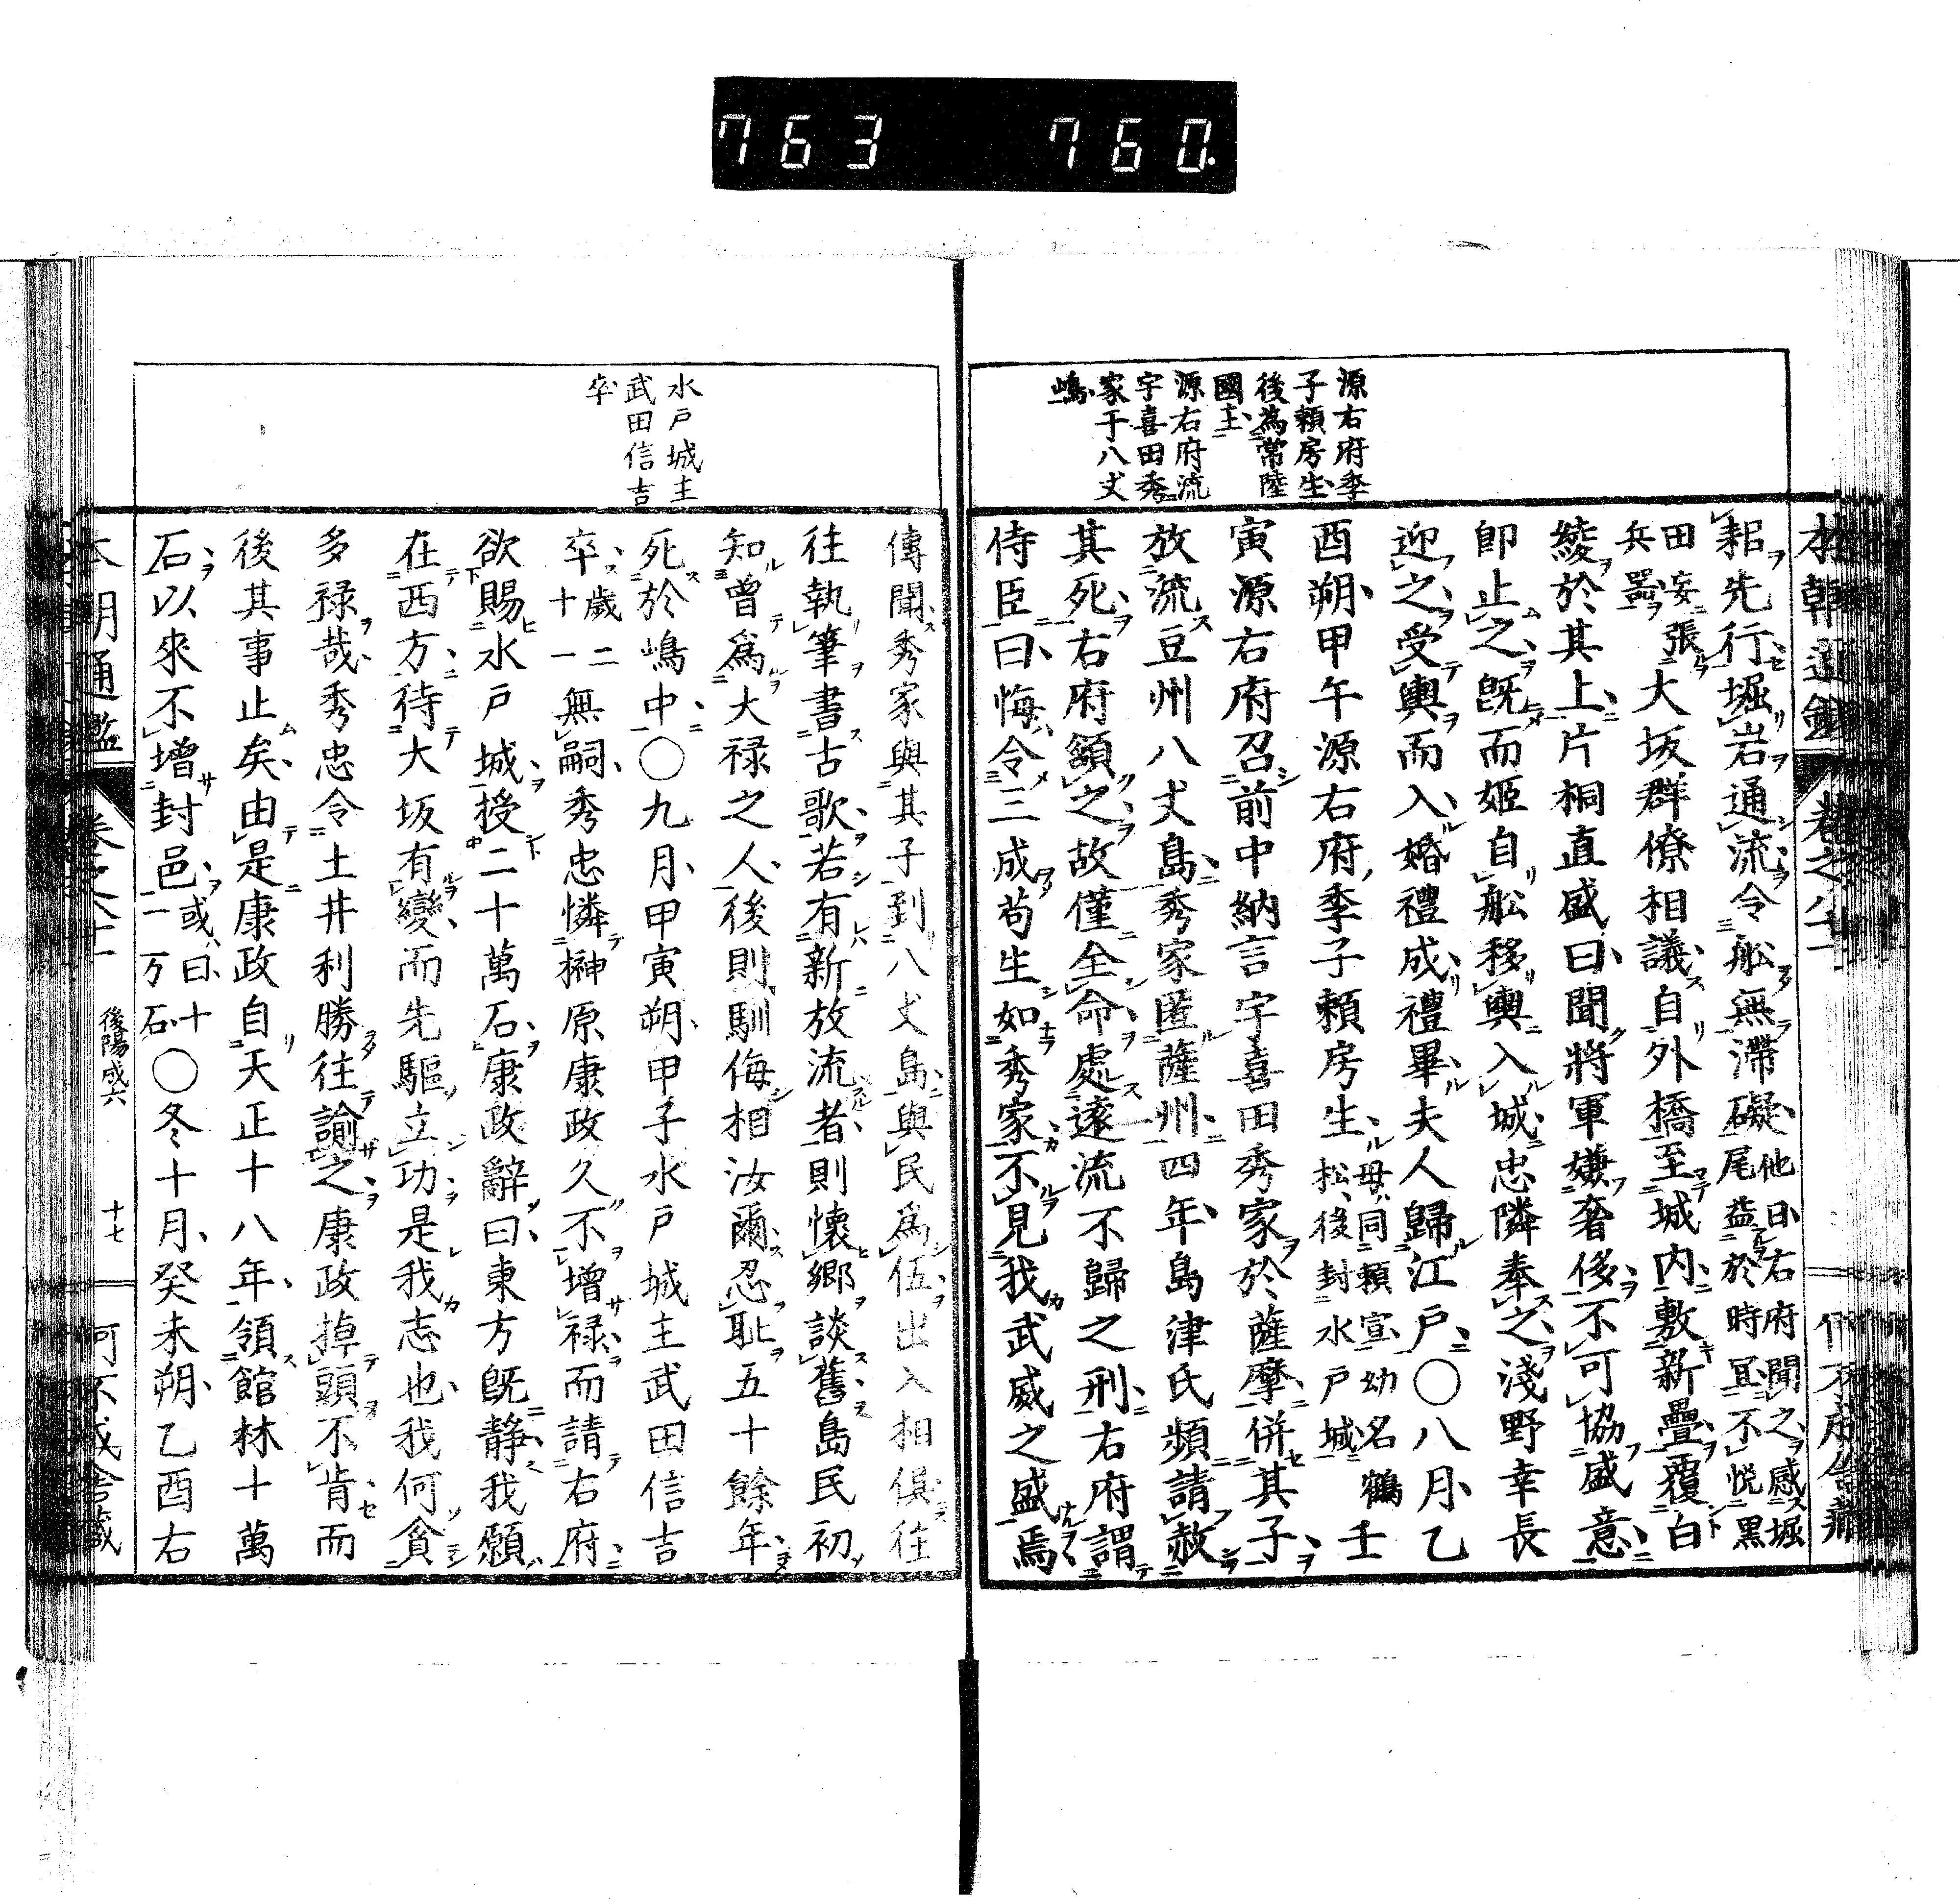 763 760.
源右府季
子頼房生
後為常陸
國主
源右府流
宇喜田秀
家于八丈
嶋
耜先行堀岩通流令舩無滯礙他日右府聞之感堀
尾益於時冝不悦黒
田妄張
兵噐大坂群僚相議自外橋至城内敷新疊覆白
綾於其上片桐直盛曰聞將軍嫌奢侈不可協盛意
即止之既而姬自舩移輿入城忠隣奉之淺野幸長
迎之受輿而入婚禮成禮畢夫人歸江戸〇八月乙
酉朔甲午源右府季子頼房生母同頼宣幼名鶴
松後封水戸城壬
寅源右府召前中納言宇喜田秀家於薩摩併其子
放流豆州八丈島秀家匿薩州四年島津氏頻請赦
其死右府頷之故僅全命處遠流不歸之刑右府謂
侍臣曰悔令三成苟生如秀家不見我武威之盛焉
水戸城主
武田信吉
卒
傳聞秀家與其子到八丈島與民爲伍出入相倶往
往執筆書古歌若有新放流者則懷郷談舊島民初
知曾爲大禄之人後則馴侮相汝爾忍恥五十餘年
死於嶋中〇九月甲寅朔甲子水戸城主武田信吉
卒歲二
十一無嗣秀忠憐榊原康政久不增禄而請右府
欲賜水戸城授二十萬石康政辭曰東方既静我願
在西方待大坂有變而先驅立功是我志也我何貪
多禄哉秀忠令土井利勝往諭之康政掉頭不肯而
後其事止矣由是康政自天正十八年領館林十萬
石以來不增封邑或曰十
一万石〇冬十月癸未朔乙酉右
本朝通鑑 卷之八十一 後陽成六 十七